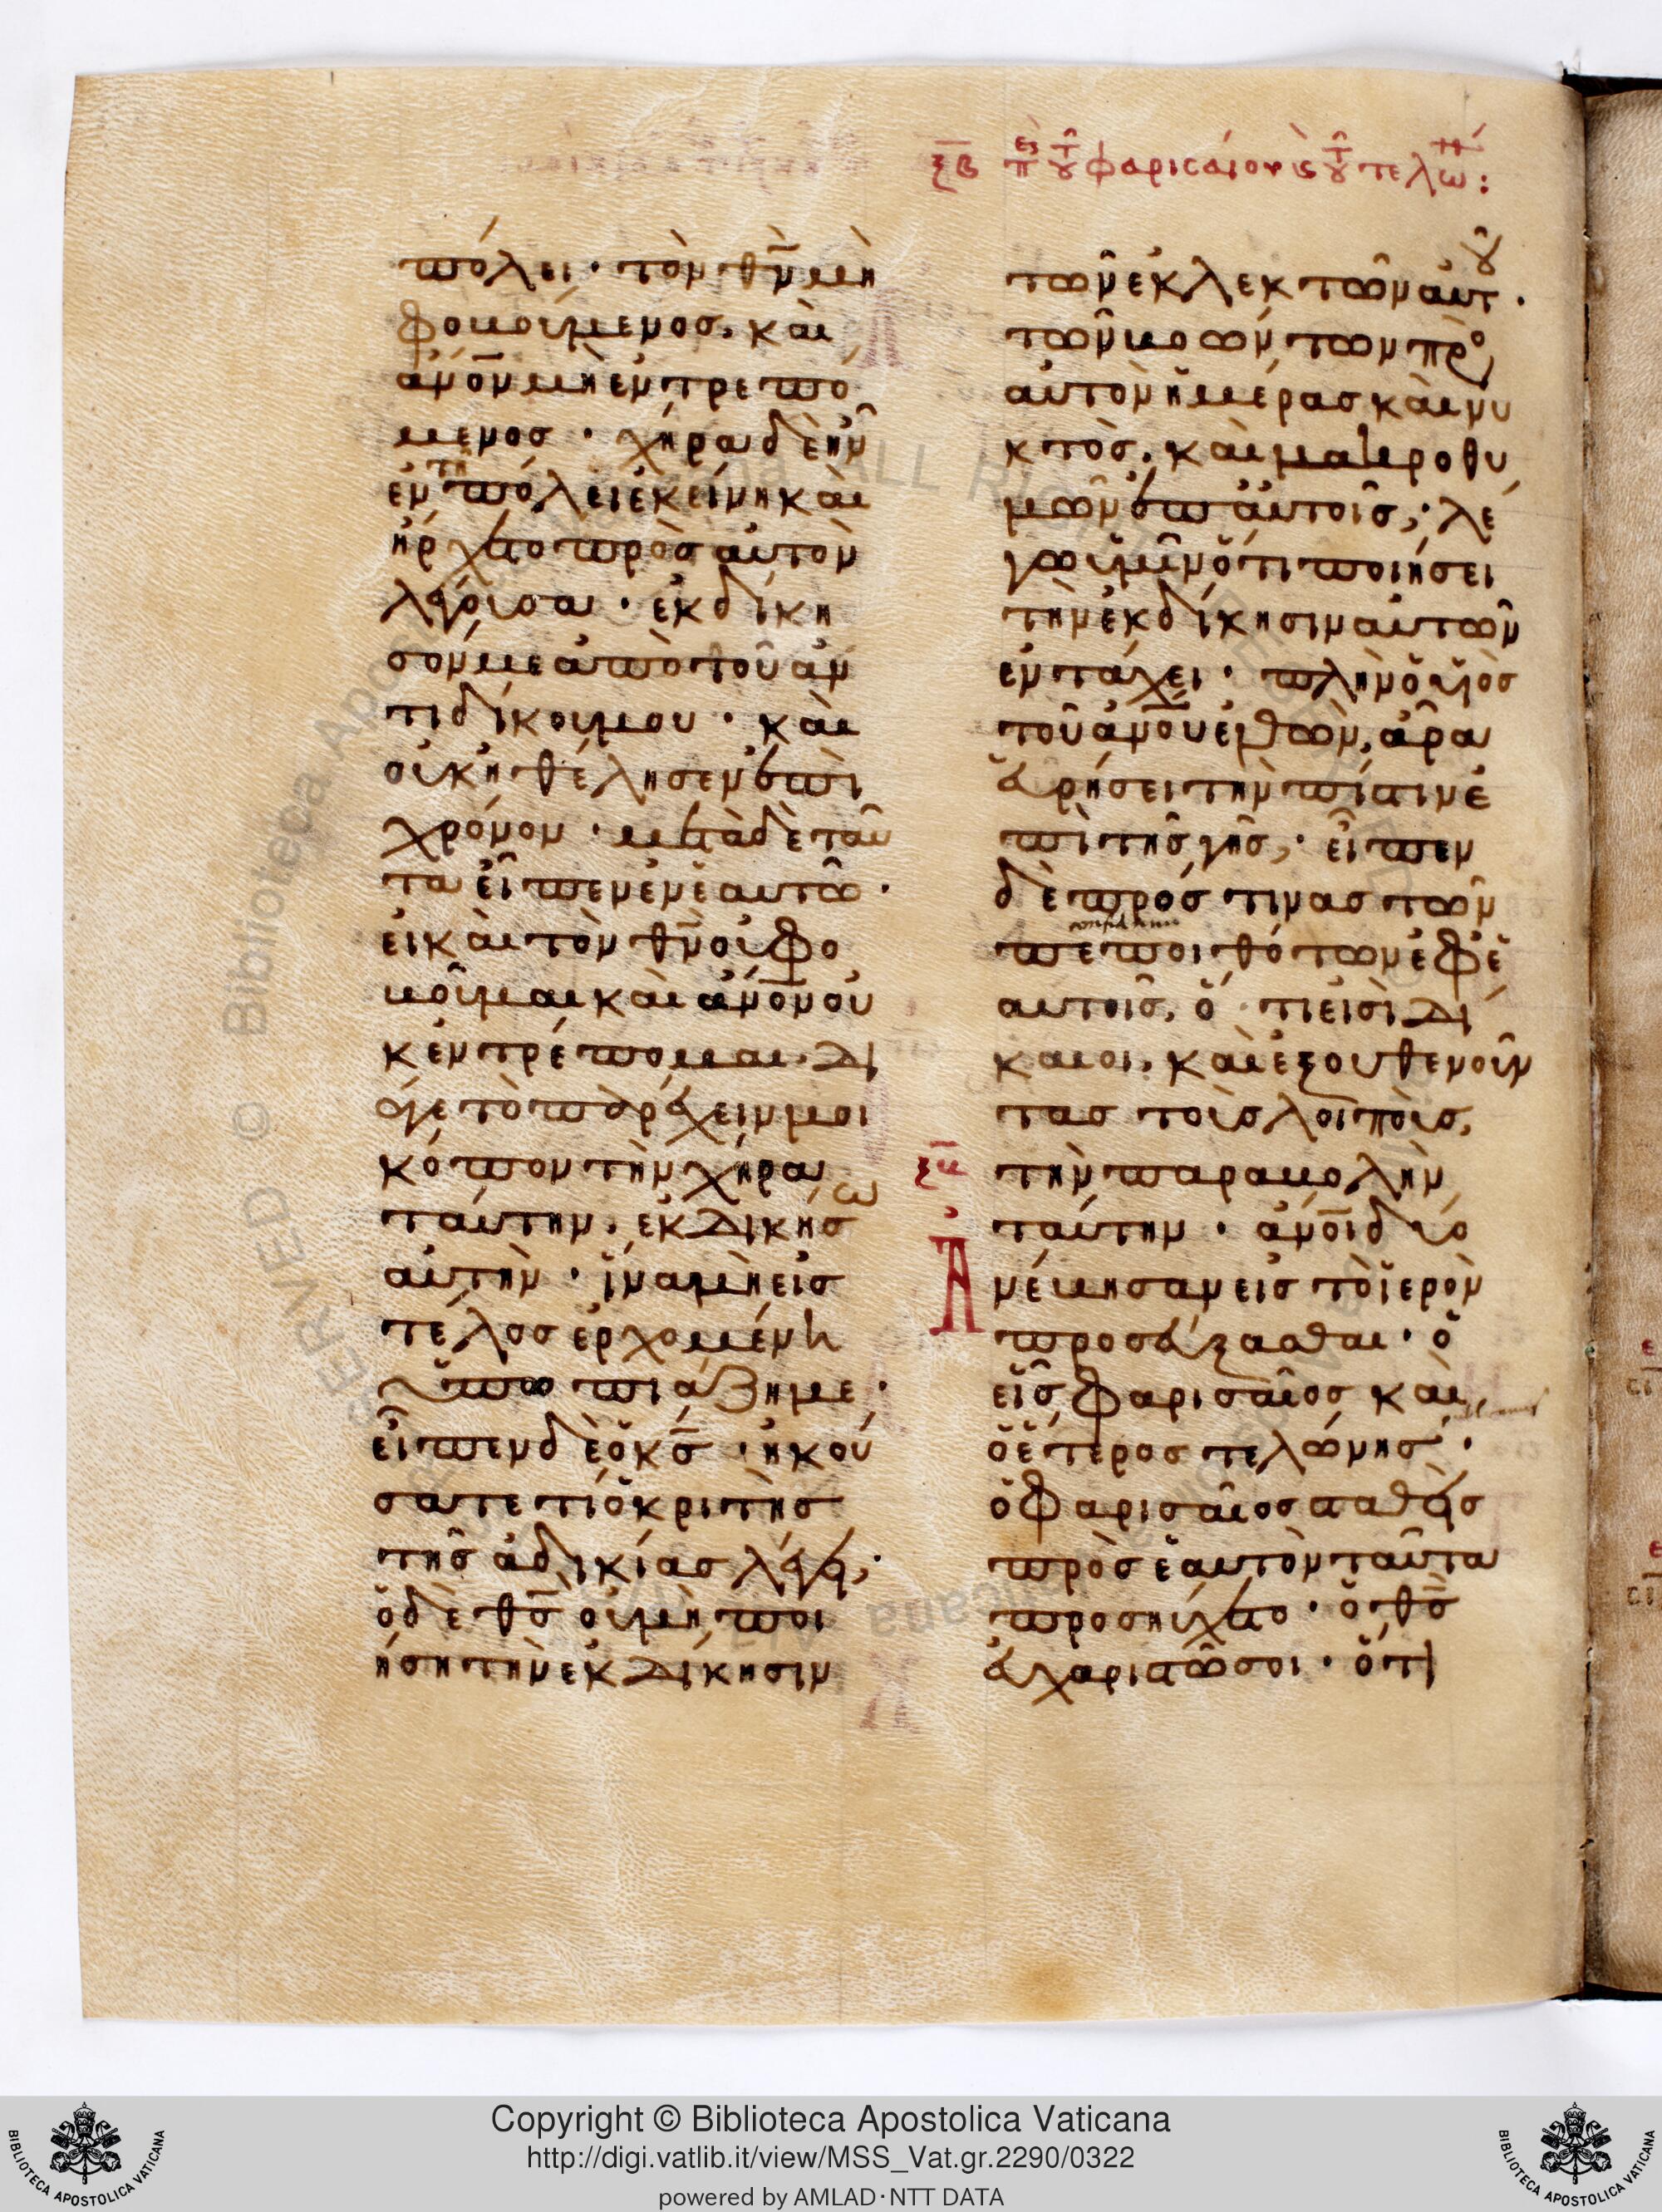 ξβ πε τοῦ φαρισαίου κ τοῦ τελώ:
πόλει· τὸν θν μὴ
φοβούμενος, καὶ
ἀνον μὴ ἐντρεπό
μενος· χήρα δὲ ἦν
ἐν τῆ πόλει ἐκείνη καὶ
ἤρχετο πρὸς αὐτὸν
λέγουσα· ἐκδίκη
σόν με ἀπὸ τοῦ ἀν
τιδίκου μου· καὶ
οὐκ ἠθέλησεν ἐπὶ
χρόνον· μετὰ δὲ ταῦ
τα εἶπεν ἐν ἑαυτῶ·
εἰ καὶ τὸν θν οὐ φο
βοῦμαι καὶ ἀνον οὐ
κ ἐντρέπομαι. δι
ά γε τὸ παρέχειν μοι
κόπον τὴν χήραν
ταύτην, ἐκδικήσω
αὐτὴν· ἵνα μὴ εἰς
τέλος ἐρχομένη
ὑπωπιάζη με·
εἶπεν δὲ ὁ κς· ἠκού
σατε τι ὁ κριτὴς
τῆς ἀδικίας λέγει,·
ὁ δὲ θς οὐ μὴ ποι
ήση τὴν ἐκδίκησιν
τῶν ἐκλεκτῶν αὐτοῦ·
τῶν βοών των πρὸ
αὐτὸν ἡμέρας καὶ νυ
κτὸς, καὶ μακροθυ
μῶν ἐπ αὐτοῖς,· λέ
γω ὑμῖν ὅτι ποιήσει
τὴν ἐκδίκησιν αὐτῶν
ἐν τάχει· πλὴν ὁ υἱὸς
τοῦ ἀνου ἐλθὼν, ἆρα
εὑρήσει τὴν πίστιν ἐ
πὶ τῆς γῆς,· εἶπεν
δὲ πρός τινας τῶν
πεποιθότων ἐφ ἑ
αυτοῖς, ὅτι εἰσὶ δί
καιοι, καὶ ἐξουθενοῦν
τας τοὺς λοιποὺς,
ξβ τὴν παραβολὴν
ταύτην· ἀνοι δύο
Ἀνέβησαν εἰς τὸ ἱερὸν
προσεύξασθαι· ὁ
εἷς φαρισαῖος καὶ
ὁ ἕτερος τελώνης·
ὁ φαρισαῖος σταθεὶς
πρὸς ἑαυτὸν ταῦτα
προσηύχετο· ὁ θς
εὐχαριστῶ σοι· ὅτι
Copyright © Biblioteca Apostolica Vaticana
http://digi.vatlib.it/view/MSS_Vat.gr.2290/0322
powered by AMLAD·NTT DATA